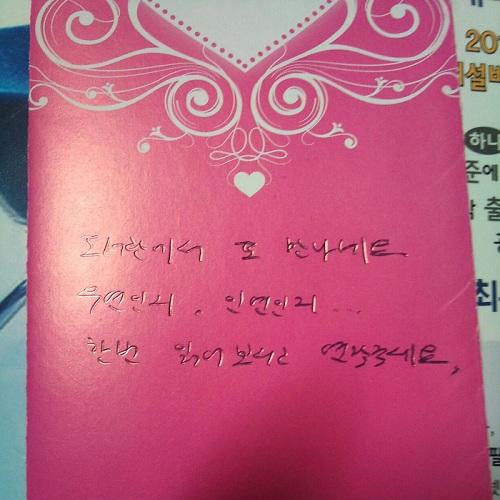 201
설비
하나
준에
출
최
필
도서관에서 또 만나네요
우연인지, 인연인지 ...
한번 읽어보시고 연락주세요,